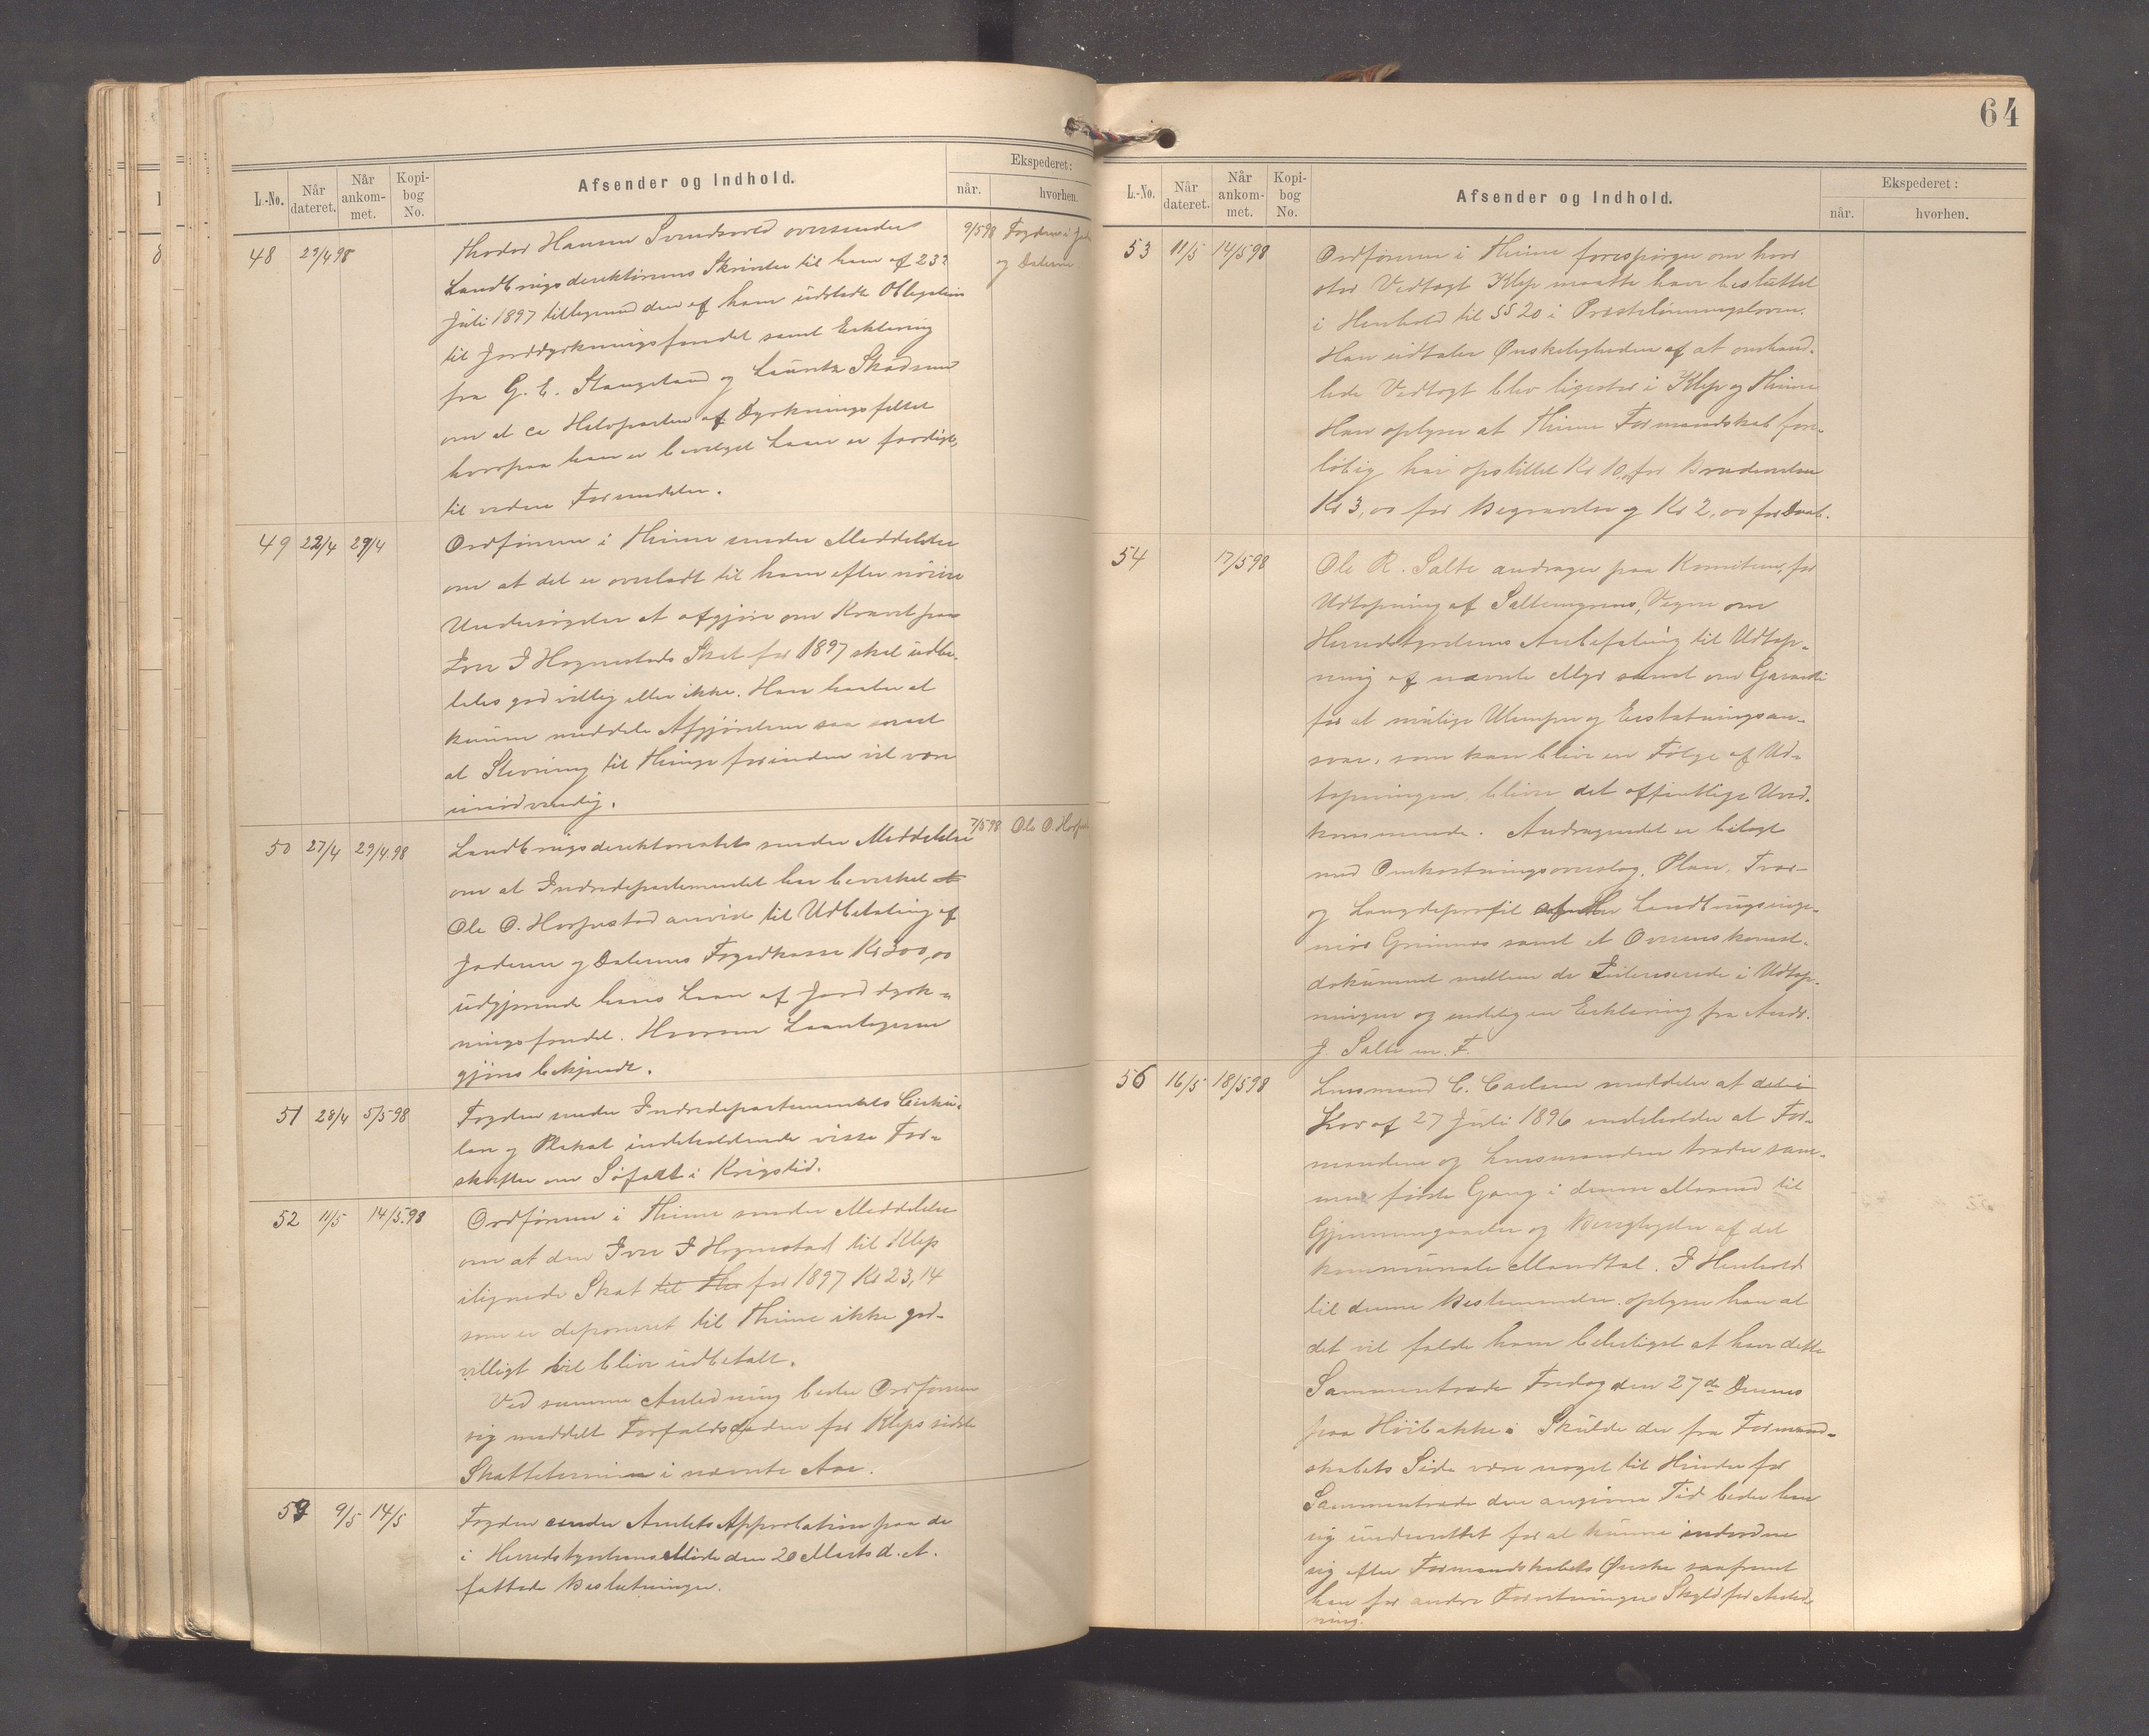 L.-No.
Når dateret.
Når ankom-met.
Kopi-bog No.
Afsender og Indhold.
Ekspederet:
når.
hvorhen.
48 29/4 98
Thodor Hansen Svendsvold oversender
Landbrugsdirektørens Skrivelse til ham af 23?
Juli 1897 tilligemed den af ham udstedte Obligation
til Jorddyrkningsfondet samt Erklæring
fra G. E. Stangeland og Lauritz Skadsem
om at ca Halvparten af Dyrkningsfeltet
hvorpaa han er bevilget Laan er færdigt,
til videre Formidler.
9/5 98 Fogden i Jæd
og Dalerne.
49 22/4 29/4
Ordføreren i Thime sender Meddelelse
om at det er overladt til ham efter nöiere
Undersögelse at afgjöre om Kravet paa
Iver I Hognestads Skat for 1897 skal udbe-
tales godvillig eller ikke. Han haaber at
kunne meddele Afgjörelsen saa snart
at Stevning til Thinge forinden vil være
unödvendig.
50 27/4 29/4.98
Landbrugsdirektoratets sender Meddelelse
om at Indredepartementet har bevirket at
Ole O. Horpestad anvist til Udbetaling af
Jæderen og Dalernes Fogedkasse Kr 300,00
udgjørende hans Laan af Jorddyrk-
ningsfondet. Hvorom Laantageren
gjöres bekjendt.
7/5 98 Ole O. Horpesta
51 28/4 5/5 98
Fogden sender Indredepartementets Cirku-
lær og Plakat indeholdende visse For-
skrifter om Söfart i Krigstid.
52 11/5 14/5.98
Ordföreren i Thime sender Meddelelse
om at den Iver I Hognestad til Klep
ilignede Skat til Thi for 1897 Kr 23,14
som er deponeret til Thime ikke god-
villigt vil blive udbetalt.
Ved samme Anledning beder Ordföreren
sig meddelt Forfaldsdaden for Kleps sidste
Skattetermin i nævnte Aar.
59 9/5 14/5
Fogden sender Amtets Approbation paa de
i Herredstyrelsens Möde den 20 Marts d. A.
fattede Beslutninger.
64
L.-No.
Når dateret.
Når ankom-met.
Kopi-bog No.
Afsender og Indhold.
Ekspederet:
når.
hvorhen.
53 11/5 14/5 98
Ordföreren i Thime forespörger om hvor
stor Vedtagt Klep maatte have besluttet
i Henhold til §§ 20 i Præstelönningsloven.
Han udtaler Ønskeligheden af at omhand-
lede Vedtagt blev ligestor i Klep og Thime
Han oplyser at Thime Formandskab fore-
löbig har opstillet Kr 10,00 for Brudevielser
Kr 3,00 for Begravelse og Kr 2,00 for Daab.
54 17/5 98
Ole R. Salte andrager paa Komiteen, for
Udtapning af Saltemyrens, Vegne om
Herredstyrelsens Anbefaling til Udtap-
ning af nævnte Myr samt om Garanti
for at mulige Ulemper og Erstatningsan-
svar, som kan blive en Følge af Ud-
tapningen, blive det offentlige Uved-
kommende. Andragendet er bilagt
med Omkostningsoverslag, Plan, Tvær-
og Længdeprofil af Landbrugsinge-
niör Grimnes samt et Overenskomst-
dokument mellem de Interesserede i Udtap-
ningen og endelig en Erklæring fra Andr.
J. Salte m. F.
56 16/5 18/5 98
Lensmand C. Carlsen meddeler at det i
Lov af 27 Juli 1896 indeholdes at For-
mændene og Lensmanden træder sam-
men første Gang i denne Maaned til
Gjennemgaaelse og Berigtigelse af det
kommunale Mandtal. I Henhold
til denne Bestemmelse oplyser han at
det vil falde ham beleiligst at have dette
Sammentræde Fredag den 27de Dennes
paa Höibakke. Skulde der fra Formand-
skabets Side være noget til Hinder for
Sammentræde den angivne Tid beder han
sig underrettet for at kunne indordne
sig efter Formandskabets Ønske saafremt
han for andre Forretningers Skyld får Anled-
ning.